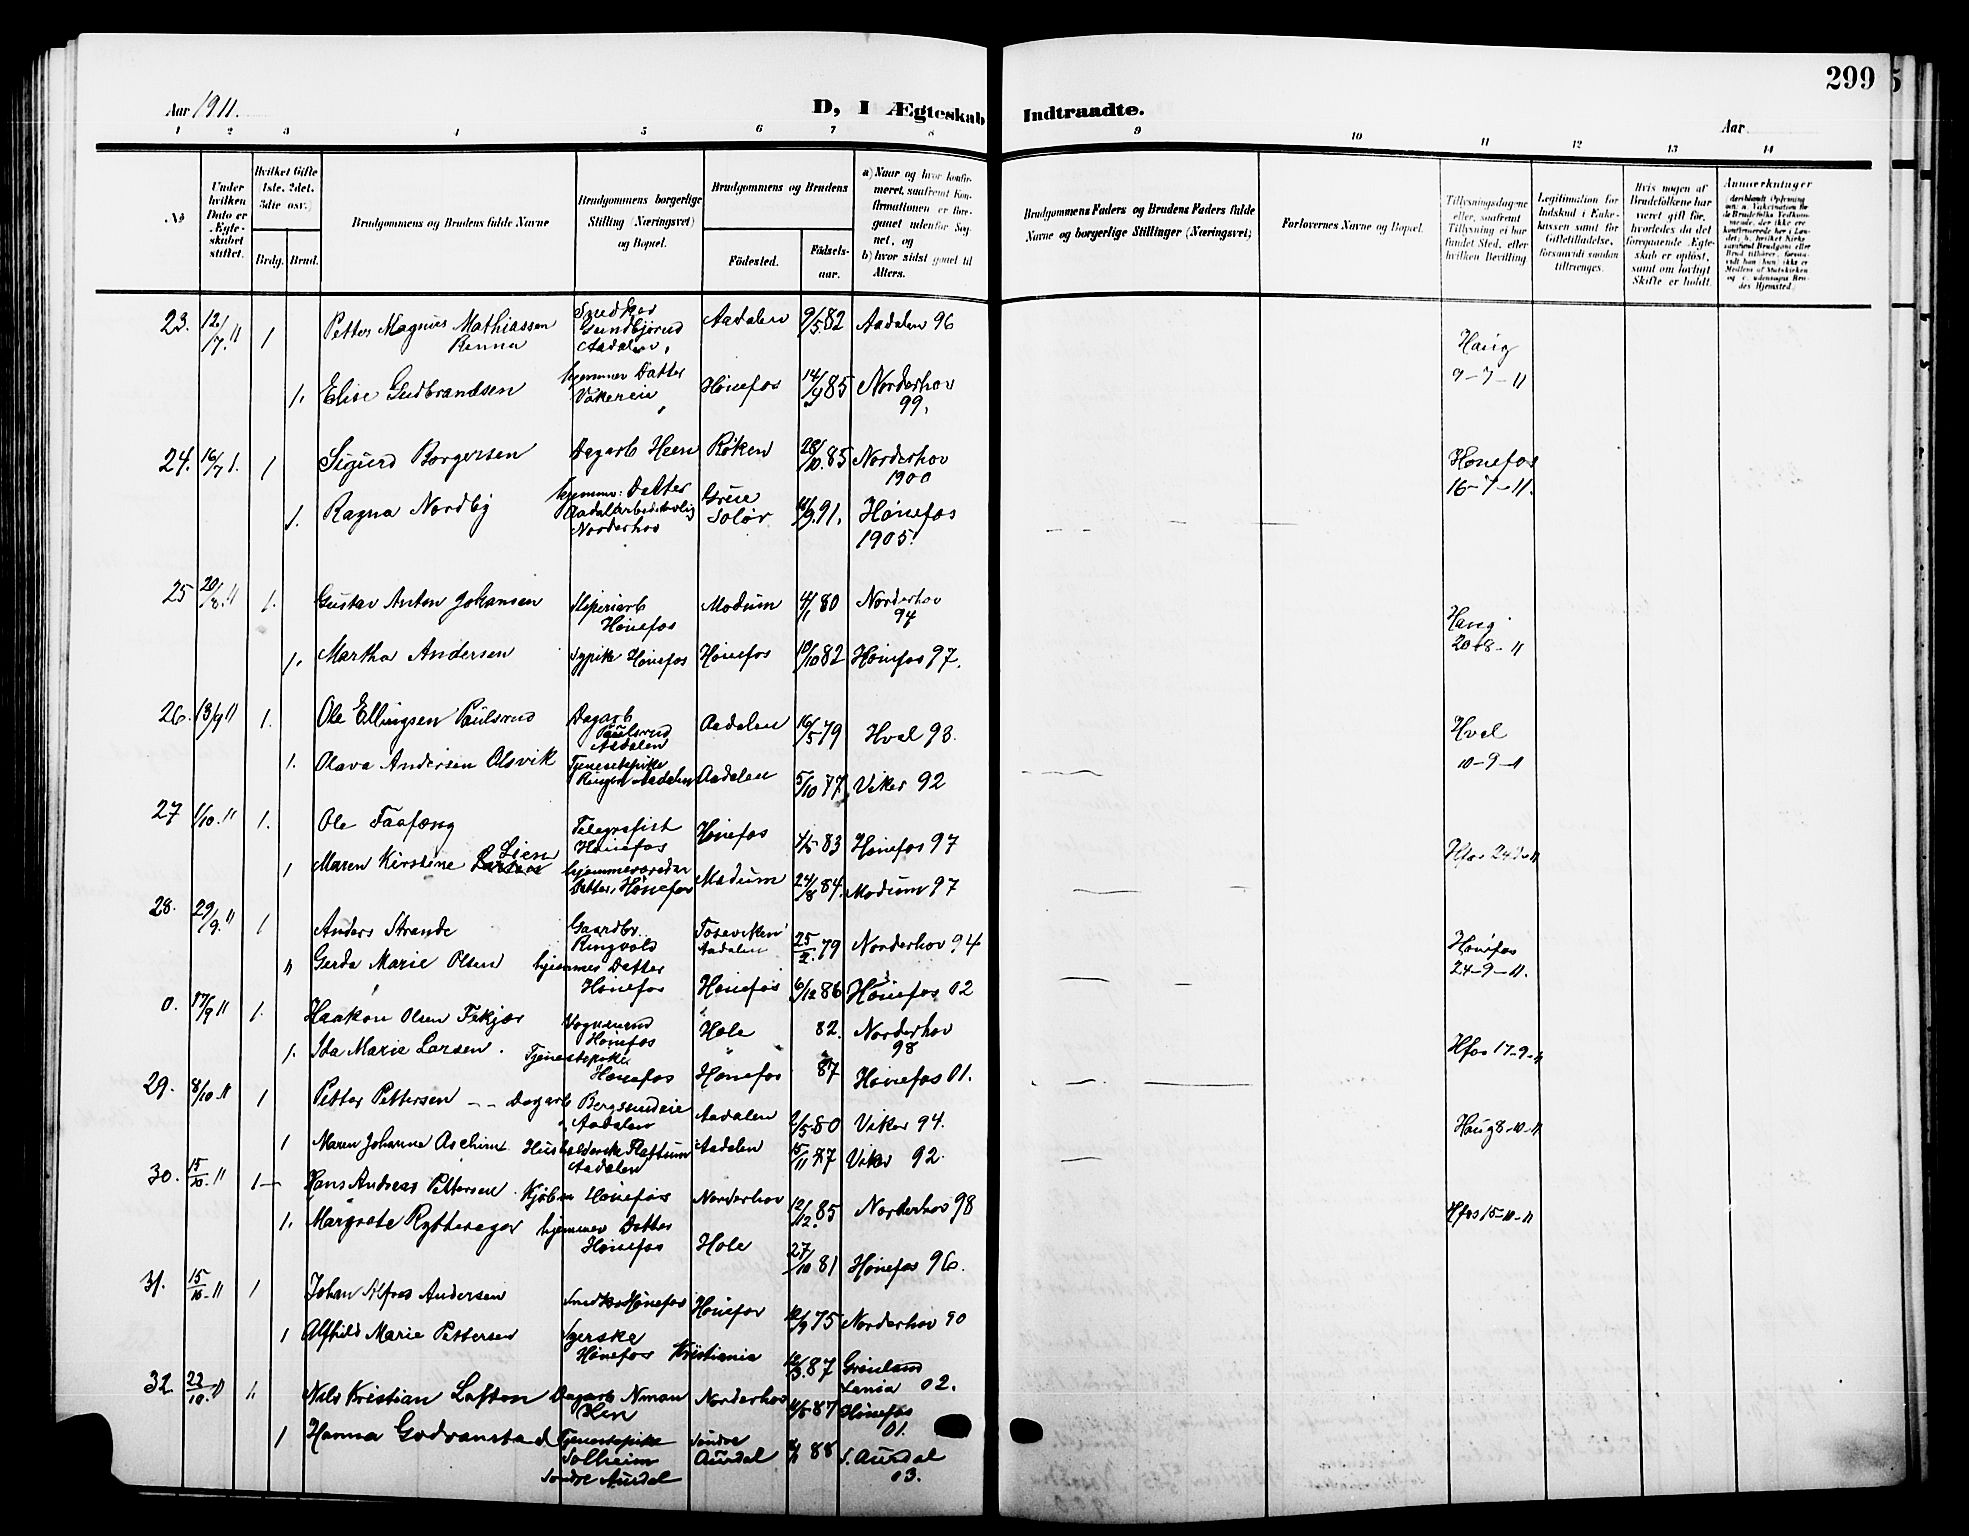 299
Aar 1911.
D, I Ægteskab Indtraadte.
Aar
1 2 3 4 5 6 7 8 9 10 11 12 13 14
№
Under hvilken Dato er Ægteskabet stiftet.
Hvilket Gifte 1ste, 2det, 3die osv.)
Brdg. Brud.
Brudgommens og Brudens fulde Navne
Brudgommens borgerlige Stilling (Næringsvei) og Bopæl.
Brudgommens og Brudens
Födested.
Födselsaar.
a) Naar og hvor konfirmeret, saafremt Konfirmationen er foregaaet udenfor Sognet, og
b) hvor sidst gaaet til Alters.
Brudgommens Faders og Brudens Faders fulde Navne og borgerlige Stillinger (Næringsvei)
Forlovernes Navne og Bopæl.
Tillysningsdagene eller, saafremt Tillysning ei har fundet Sted, efter hvilken Bevilling
Legitimation for Indskud i Enkekassen samt for Giftetilladelse, forsaavidt saadan tiltrænges.
Hvis nogen af Brudefolkene har været gift før, hvorledes da det foregaaende Ægteskab er opløst, samt om lovligt Skifte er holdt.
Anmærkninger
23. 12/7.11 1 Petter Magnus Mathiassen Renna Snedker Gundbjørud Aadalen, Aadalen 9/5 82 Aadalen 96 Haug 9-7-11
1. Elise Gudbrandsen hjemmev Datter Vakereie Hønefos 85 Norderhov 99.
24. 16/7 1. 1 Sigurd Borgersen Dagarb Heen Røken 28/10. 85 Norderhov 1900 Hønefos 16-7-11.
1. Ragna Nordby hjemmev: Datter Norderhov Grue Solør 91. Hønefos 1905.
25 20/8.11 1. Gustav Anton Johansen Sliperiarb Hønefos Modum 4/1 80 Norderhov 94 Haug 20-8-11
1. Martha Andersen Sypike Hønefos Hønefos 19/10 82 Hønefos 97.
26. 13/9 11 1. Ole Ellingsen Paulsrud Dagarb Paulsrud Aadalen Aadalen 16/5 79 Hval 93. Hval 10-9-11
1. Olava Andersen Olsvik Tjenestepike Ringen Aadalen Aadalen 5/10 77 Viker 92
27 1/10.11 1. Ole Faafæng Telegrafist Hønefos Hønefos 83 Hønefos 97 Hfos 24-9-11
1 Maren Kirstine Lien hjemmeværende Datter, Hønefos Modum 24/8 84. Modum 97
28. 29/9.11 1 Anders Strande Gaardbr. Ringvold Aadalen 25/2. 79 Norderhov 94 Hønefos 24-9-11.
" Gerda Marie Olsen hjemmev Datter Hønefos Hønefos 6/12 86 Hønefos 02
0. 17/9 11 1. Haakon Olsen Fekjær Vognmand Hønefos Hole 82. Norderhov 98 Hfos 17-9-11
1. Ida Marie Larsen. Tjenestepike Hønefos Hønefos 87 Hønefos 01.
29. 8/10-11 1 Petter Pettersen -- Dagarb Bergsundeie Aadalen Aadalen 2/5 80 Viker 94. Haug 8-10-11
1 Maren Johanne Aschim Husholderske Aadalen Aadalen 15/11 77 Viker 92.
30. 15/10.11 1 Hans Andreas Pettersen Kjøbm Hønefos Norderhov 12/12. 85 Norderhov 98 Hfos 15-10-11
1. Margrete Rytterager hjemmev Datter Hønefos Hole 27/10 81 Hønefos 96.
31. 15/10-11 1 Johan Alfred Andersen Snedker Hønefos Hønefos 75 Norderhov 90
1 Alfhild Marie Pettersen Syerske Hønefos Kristiania 87 Grønland 02.
32 22/10.11 " Nils Kristian Loftsen Dagarb Hen Norderhov 87 Hønefos 01.
1 Hanna Godvanstad Tjenestepike Solheim Søndre Aurdal Søndre Aurdal 88 S. Aurdal 03.